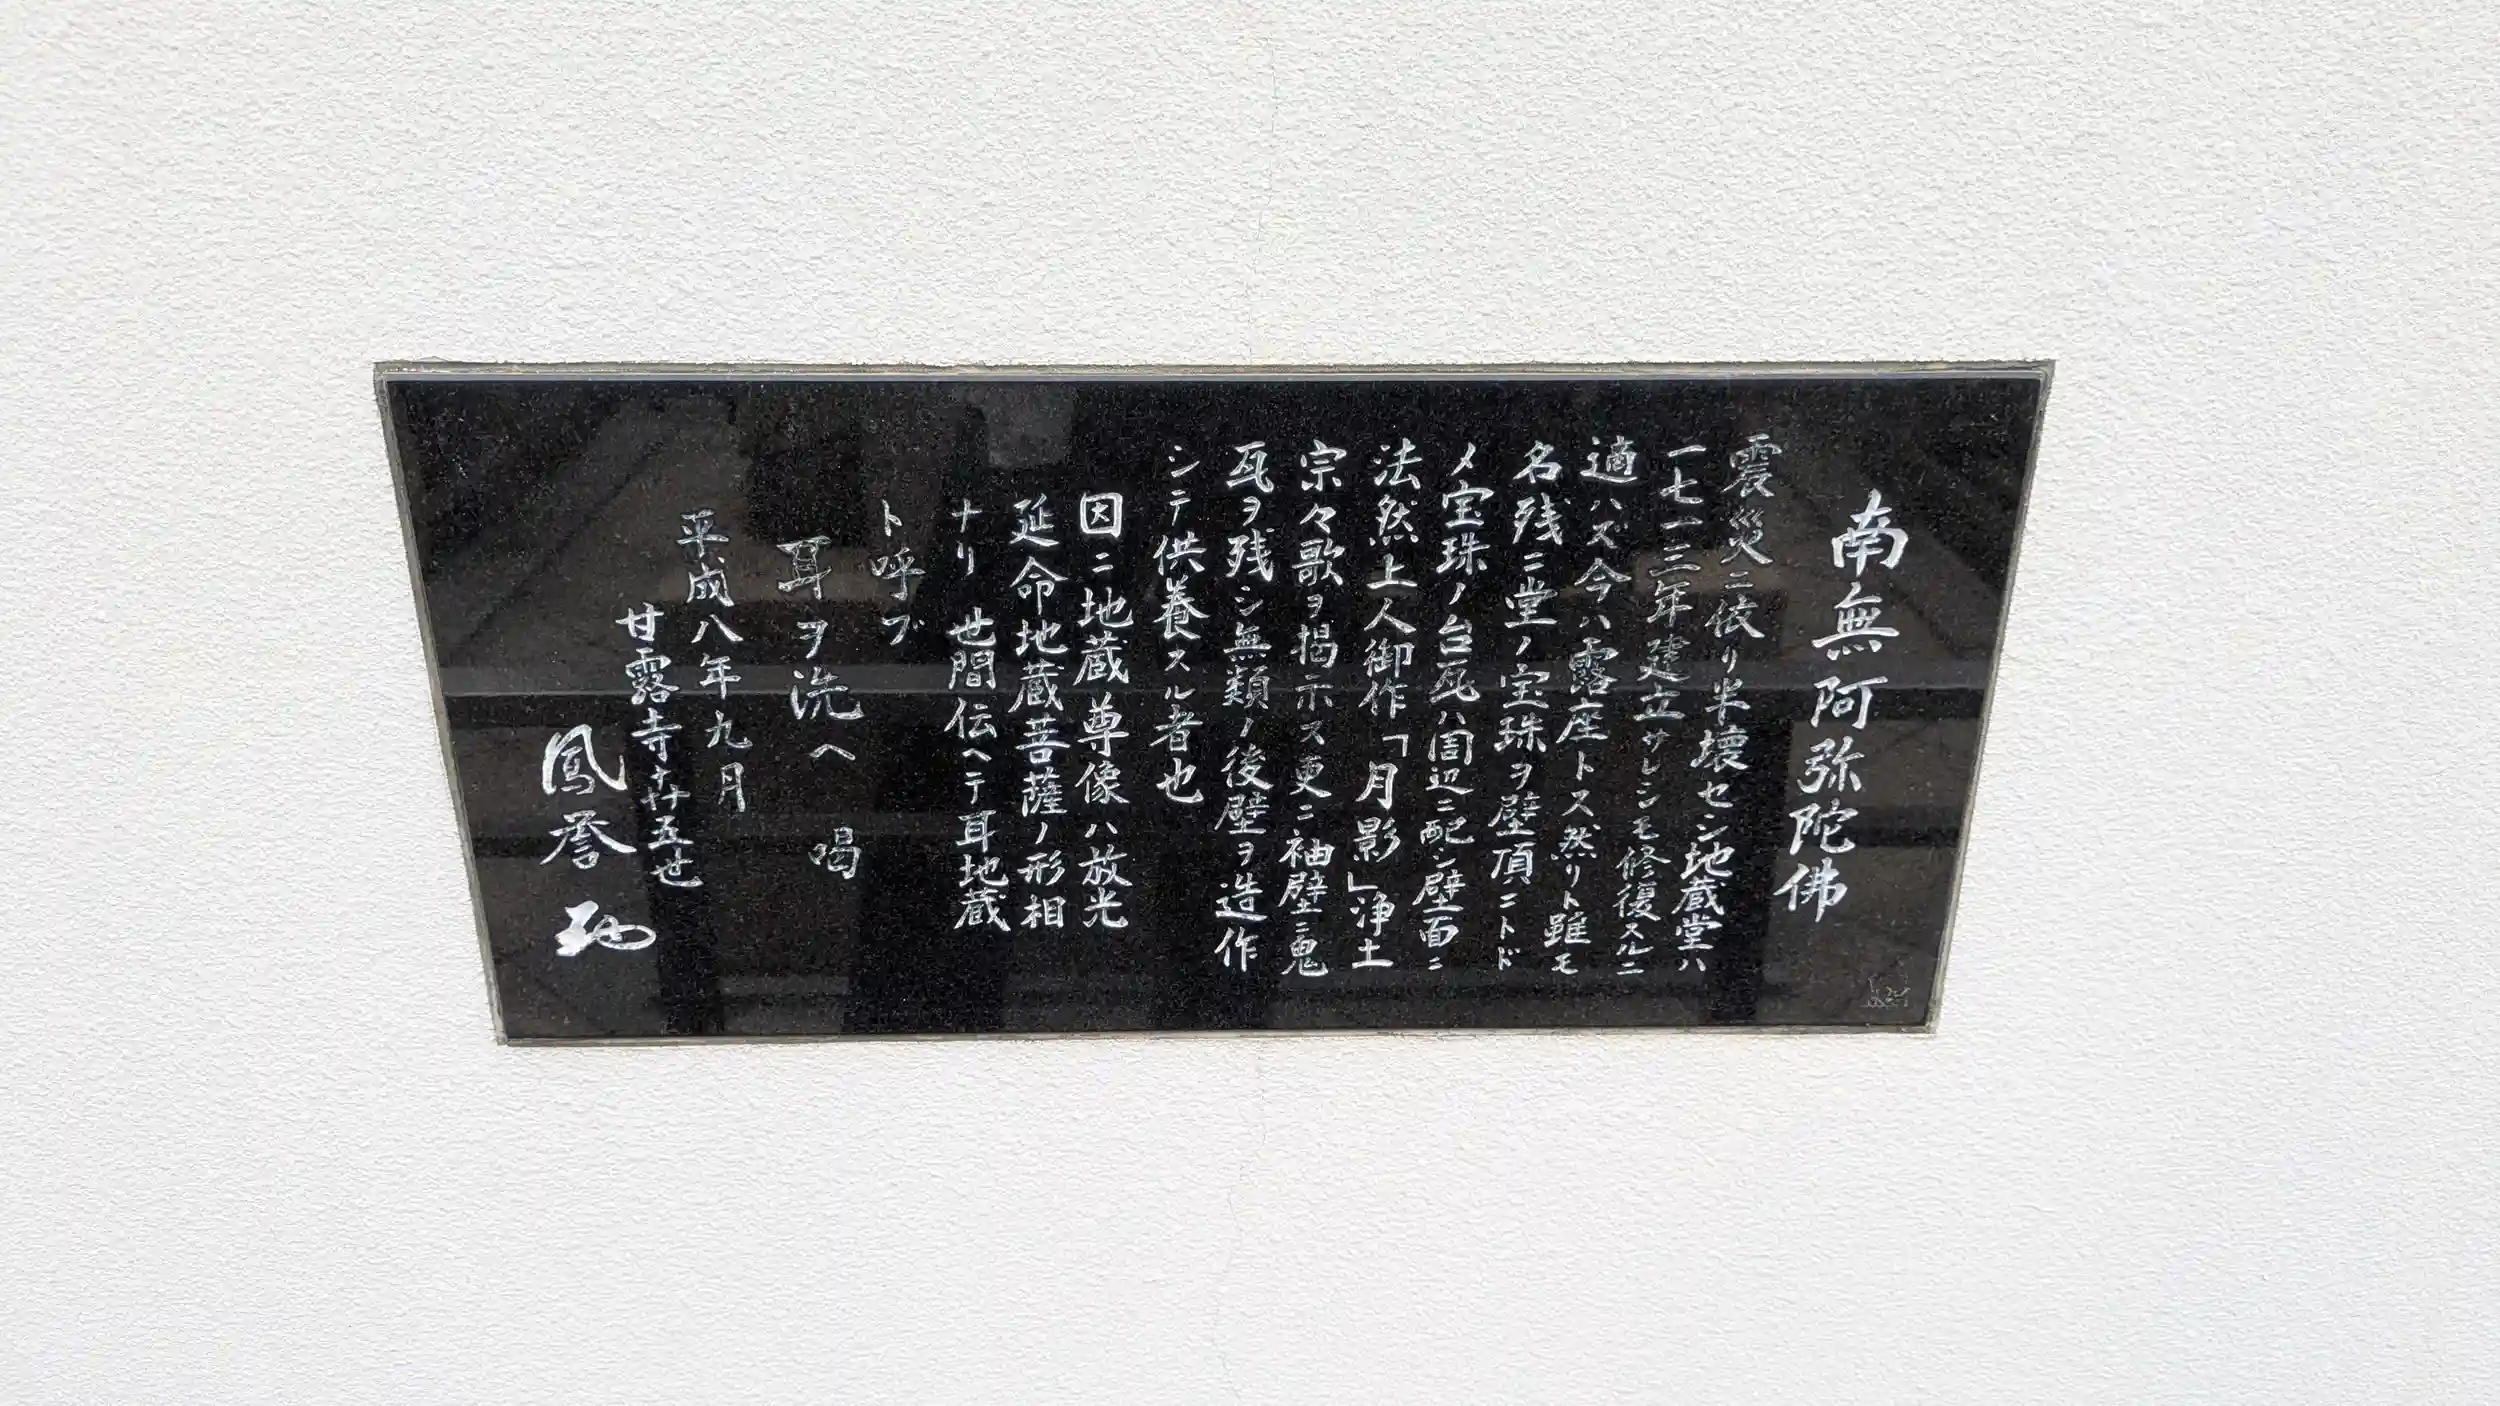 南無阿弥陀佛
震災ニ依リ半壊セシ地蔵堂ハ
一七一三年建立サレシモ修復スルニ
適ハズ今ハ露座トス然リト雖モ
名残ニ堂ノ宝珠ヲ壁頂ニトド
メ宝珠ノ台瓦ハ周辺ニ配シ壁面ニ
法然上人御作「月影」浄土
宗々歌ヲ掲示ス更ニ袖壁ニ鬼
瓦ヲ残シ無類ノ後壁ヲ造作
シテ供養スル者也
因ニ地蔵尊像ハ放光
延命地蔵菩薩ノ形相
ナリ 世間伝ヘテ耳地蔵
ト呼ブ
耳ヲ洗ヘ 喝
平成八年九月
甘露寺廿五世
鳳誉